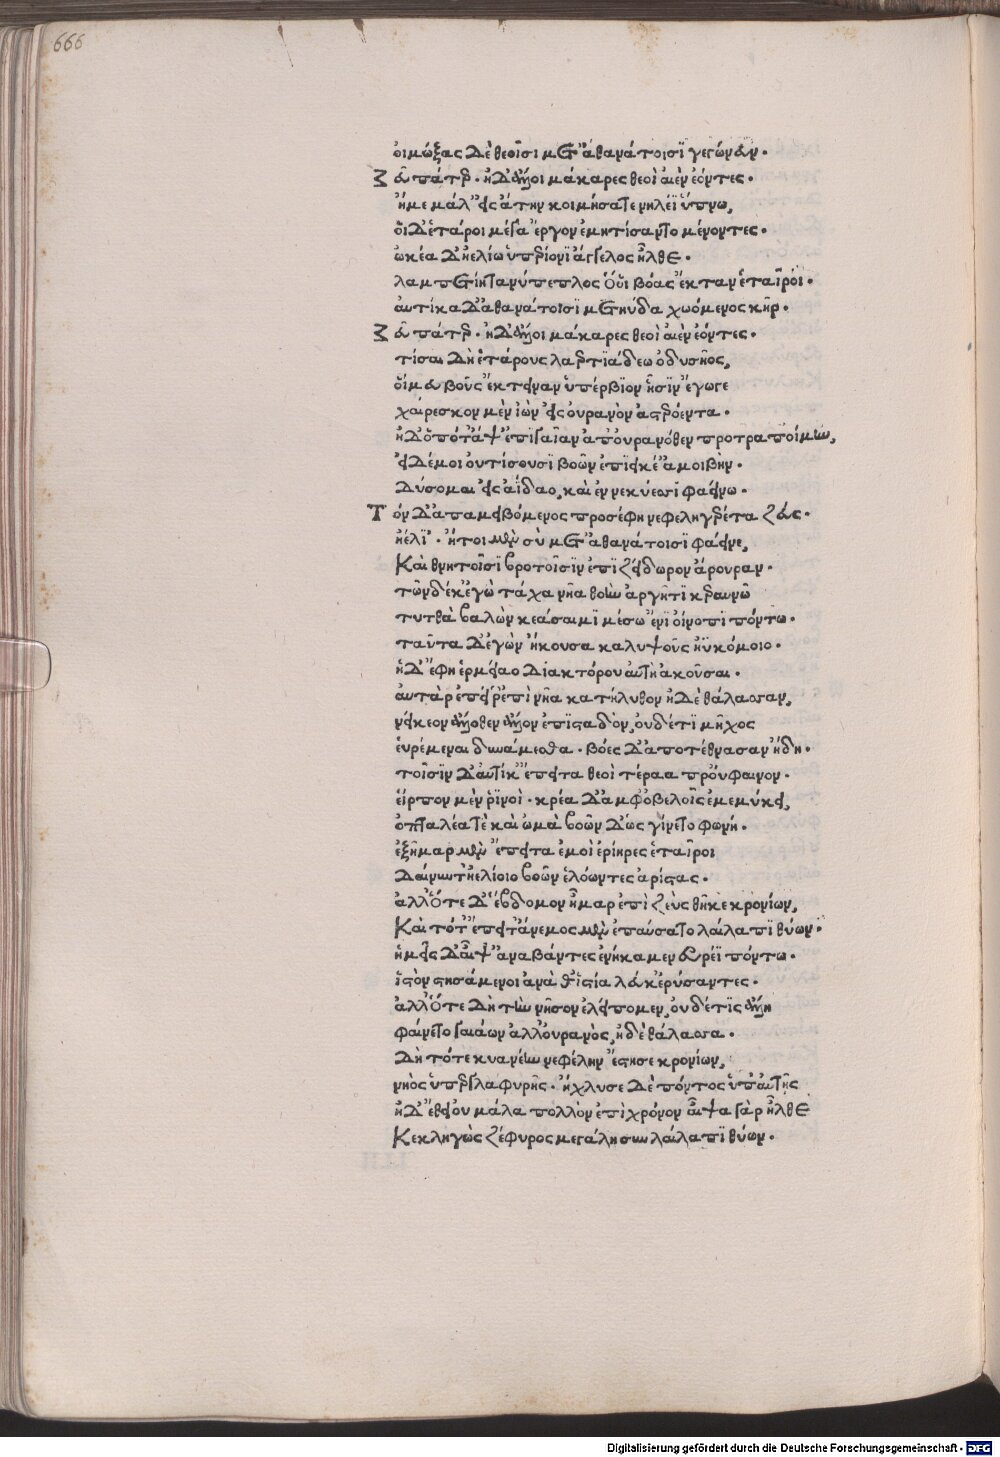 666
οἰμώξας δὲ θεοῖσι μετ' ἀθανάτοισι γεγώνευν·
Ζεῦ πάτερ· ἠδ' ἄλλοι μάκαρες θεοὶ αἰὲν ἐόντες·
ἦ με μάλ' εἰς ἄτην κοιμήσατε νηλέϊ ὕπνω,
οἱ δ' ἕταροι μέγα ἔργον ἐμητίσαντο μένοντες·
ὠκέα δ' ἠελίω ὑπερίονι ἄγγελος ἦλθε·
λαμπετίη τανύπεπλος ὅ οἱ βόας ἔκταν ἑταῖροι·
αὐτίκα δ' ἀθανάτοισι μετηύδα χωόμενος κῆρ·
Ζεῦ πάτερ· ἠδ' ἄλλοι μάκαρες θεοὶ αἰὲν ἐόντες·
τίσαι δὴ ἑτάρους λαερτιάδεω ὀδυσῆος,
οἵ μευ βοῦς ἔκτειναν ὑπέρβιον ἧσιν ἔγωγε
χαίρεσκον μὲν ἰὼν εἰς οὐρανὸν ἀστερόεντα·
ἠδ' ὁπότ' ἂψ ἐπὶ γαῖαν ἀπ' οὐρανόθεν προτραποίμην,
εἰ δέ μοι οὐ τίσουσι βοῶν ἐπιεικέ' ἀμοιβὴν·
δύσομαι εἰς ἀΐδαο, καὶ ἐν νεκύεσσι φαείνω·
Τὸν δ' ἀπαμειβόμενος προσέφη νεφεληγερέτα ζεύς·
ἠέλι'· ἤτοι μὲν σὺ μετ' ἀθανάτοισι φάεινε,
Καὶ θνητοῖσι βροτοῖσιν ἐπὶ ζείδωρον ἄρουραν·
τῶν δέ κ' ἐγὼ τάχα νῆα θοὴν ἀργῆτι κεραυνῶ
τυτθὰ βαλὼν κεάσαιμι μέσω ἐνὶ οἴνοπι πόντω·
ταῦτα δ' ἐγὼν ἤκουσα καλυψοῦς ἠϋκόμοιο·
ἡ δ' ἔφη ἑρμείαο διακτόρου αὐτὴ ἀκοῦσαι·
αὐτὰρ ἐπεί ῥ' ἐπὶ νῆα κατήλυθον ἠδὲ θάλασσαν,
νείκεον ἄλλοθεν ἄλλον ἐπισταδὸν, οὐδέ τι μῆχος
εὑρέμεναι δυνάμεσθα· βόες δ' ἀποτέθνασαν ἤδη·
τοῖσιν δ' αὐτίκ' ἔπειτα θεοὶ τέραα προὔφαινον·
εἷρπον μὲν ῥινοὶ· κρέα δ' ἀμφ' ὀβελοῖς ἐμεμύκει,
ὀπταλέα τε καὶ ὠμὰ βοῶν δ' ὣς γίνετο φωνή·
ἑξῆμαρ μὲν ἔπειτα ἐμοὶ ἐρίηρες ἑταῖροι
δαίνυντ' ἠελίοιο βοῶν ἐλόωντες ἀρίστας·
ἀλλ' ὅτε δ' ἕβδομον ἦμαρ ἐπὶ ζεὺς θῆκε κρονίων,
Καὶ τότ' ἔπειτ' ἄνεμος μὲν ἐπαύσατο λαίλαπι θύων·
ἡμεῖς δ' αἶψ' ἀναβάντες ἐνήκαμεν εὐρέϊ πόντω·
ἱστὸν στησάμενοι ἀνὰ θ' ἱστία λεύκ' ἐρύσαντες·
ἀλλ' ὅτε δὴ τὴν νῆσον ἐλείπομεν, οὐδέ τις ἄλλη
φαίνετο γαιάων ἀλλ' οὐρανὸς, ἠδὲ θάλασσα·
δὴ τότε κυανέην νεφέλην ἔστησε κρονίων,
νηὸς ὑπὲρ γλαφυρῆς· ἤχλυσε δὲ πόντος ὑπ' αὐτῆς
ἡ δ' ἔθει οὐ μάλα πολλὸν ἐπὶ χρόνον αἶψα γὰρ ἦλθε
Κεκληγὼς ζέφυρος μεγάλη σὺν λαίλαπι θύων·
Digitalisierung gefördert durch die Deutsche Forschungsgemeinschaft - DFG